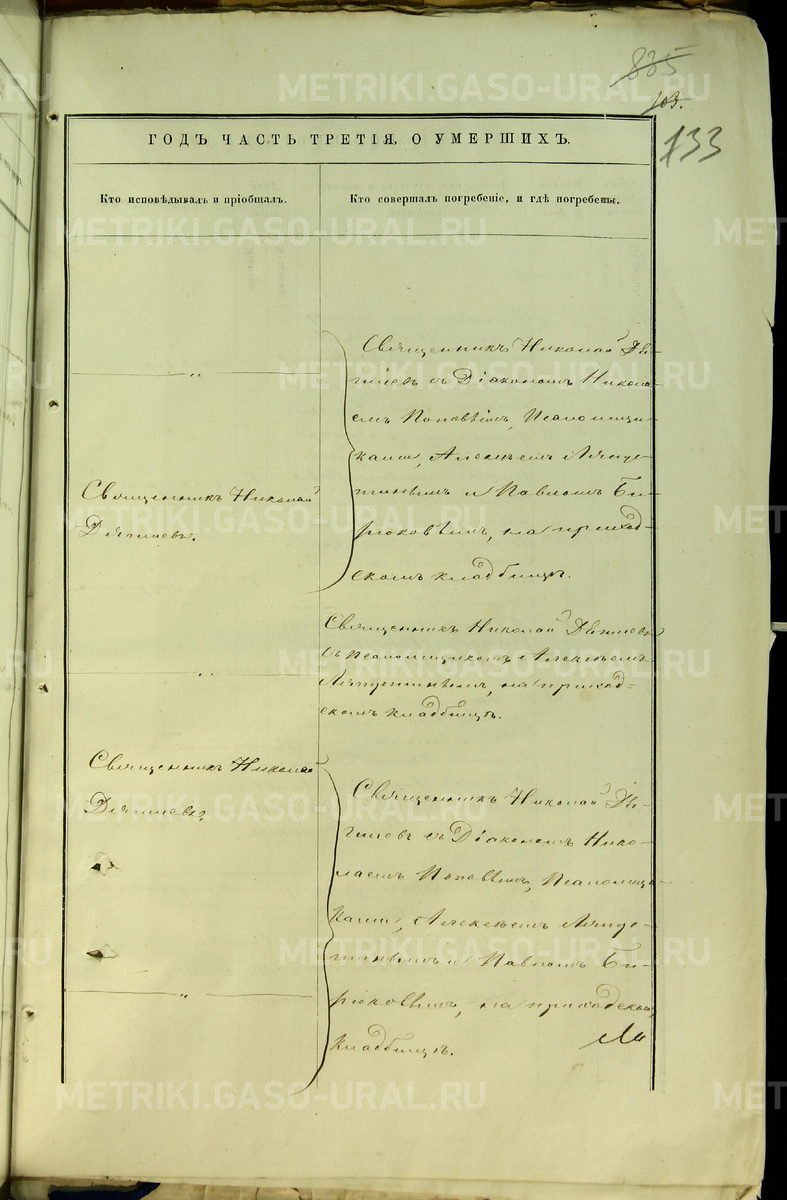 835
103.
133
ГОДЪ ЧАСТЬ ТРЕТІЯ, О УМЕРШИХЪ.
Кто исповѣдывалъ и пріобщалъ.
Кто совершалъ погребеніе, и гдѣ погребены.
Священникъ Николай
Дягилевъ.
Священникъ Николай
Дягилевъ.
Священникъ Николай Дя-
гилевъ съ Діакономъ Никола-
емъ Поповымъ, Псаломщи-
ками, Алексѣемъ Ляпус-
тинымъ и Павломъ Би-
рюковымъ, на приход-
скомъ кладбищѣ.
Священникъ Николай Дягилевъ
съ псаломщикомъ Алексѣемъ
Ляпустинымъ, на приход-
скомъ кладбищѣ.
Священникъ Николай Дя-
гилевъ съ Діакономъ Нико-
лаемъ Поповымъ, Псаломщи-
ками, Алексѣемъ Ляпус-
тинымъ и Павломъ Би-
рюковымъ, на приходском
кладбищѣ.
METRIKI.GASO-URAL.RU